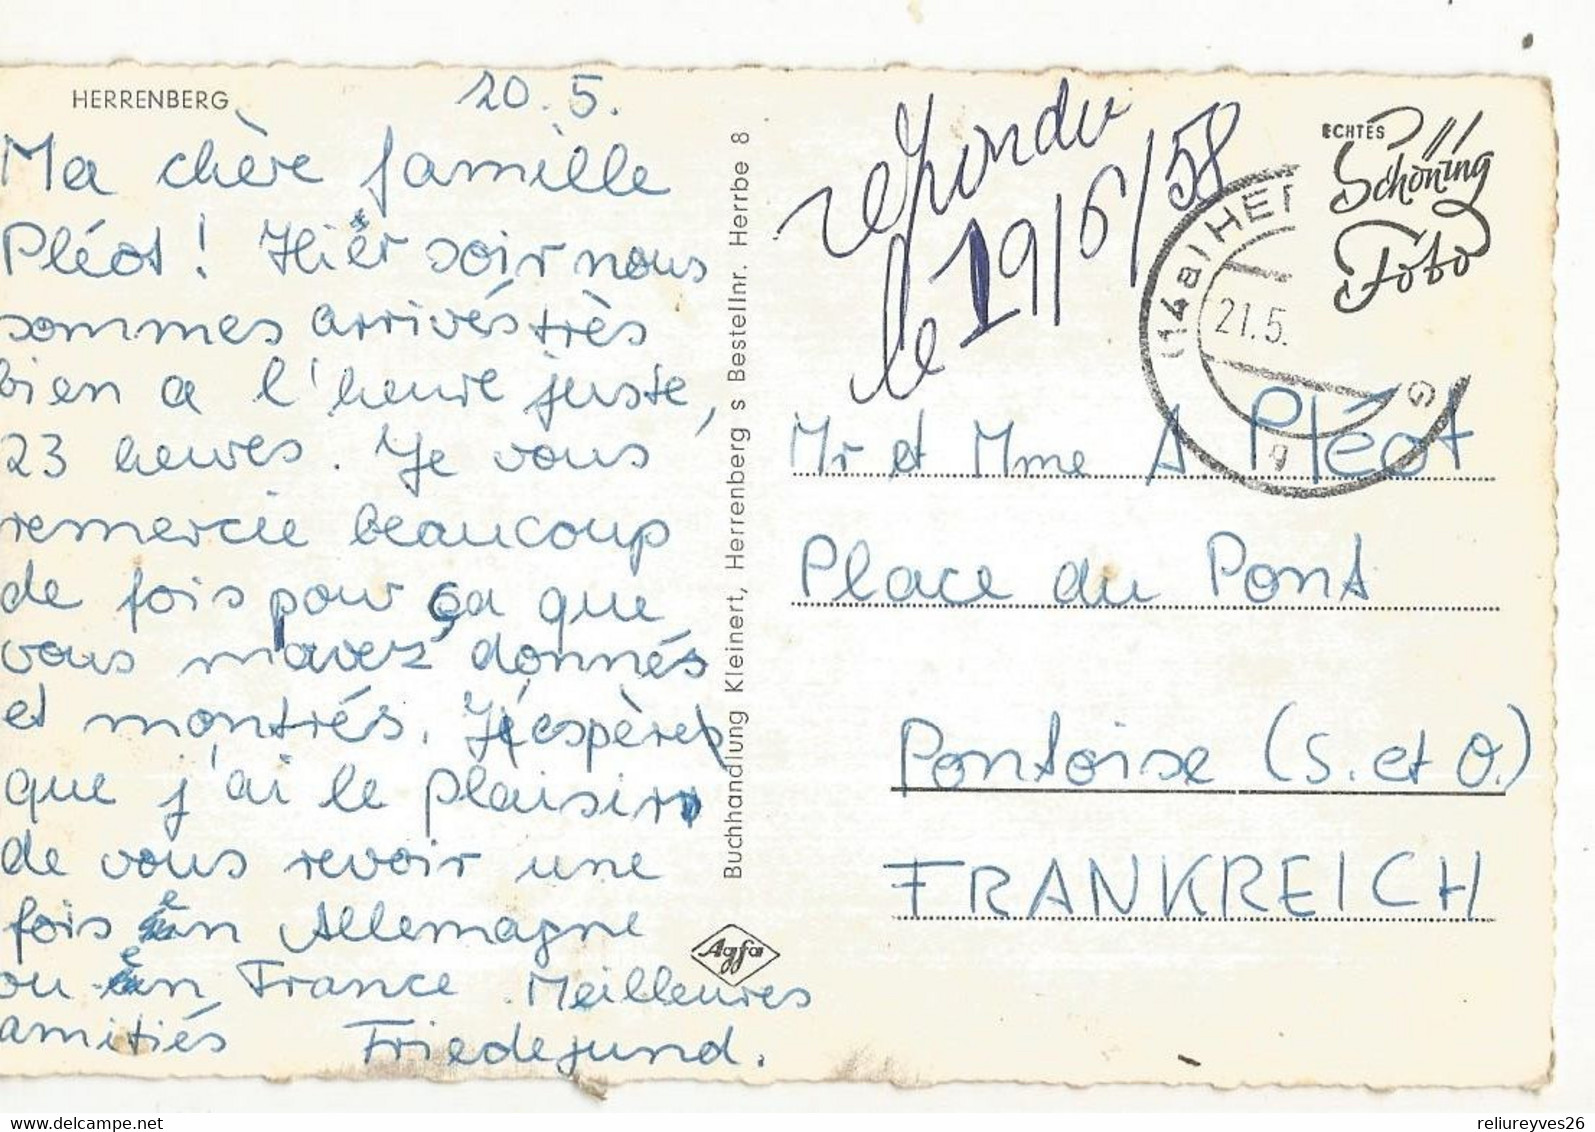 HERRENBERG
20.5.
Ma chère famille
Pléot! Hier soir nous
sommes arrivés très
bien a l'heure juste,
23 heures. Je vous
remercie beaucoup
de fois pour ça que
vous m'avez donnés
et montrés. J'espère
que j'ai le plaisir
de vous revoir une
fois en Allemagne
ou en France. Meilleures
amitiés Friedegund.
Buchhandlung Kleinert, Herrenberg s Bestellnr. Herrbe 8
Agfa
repondu
le 19/6/58
ECHTES
Schöning
Foto
(14a) HER
21.5.
G
g
Mr et Mme A Pléot
Place du Pont
Pontoise (S. et O.)
FRANKREICH
reliureyves26